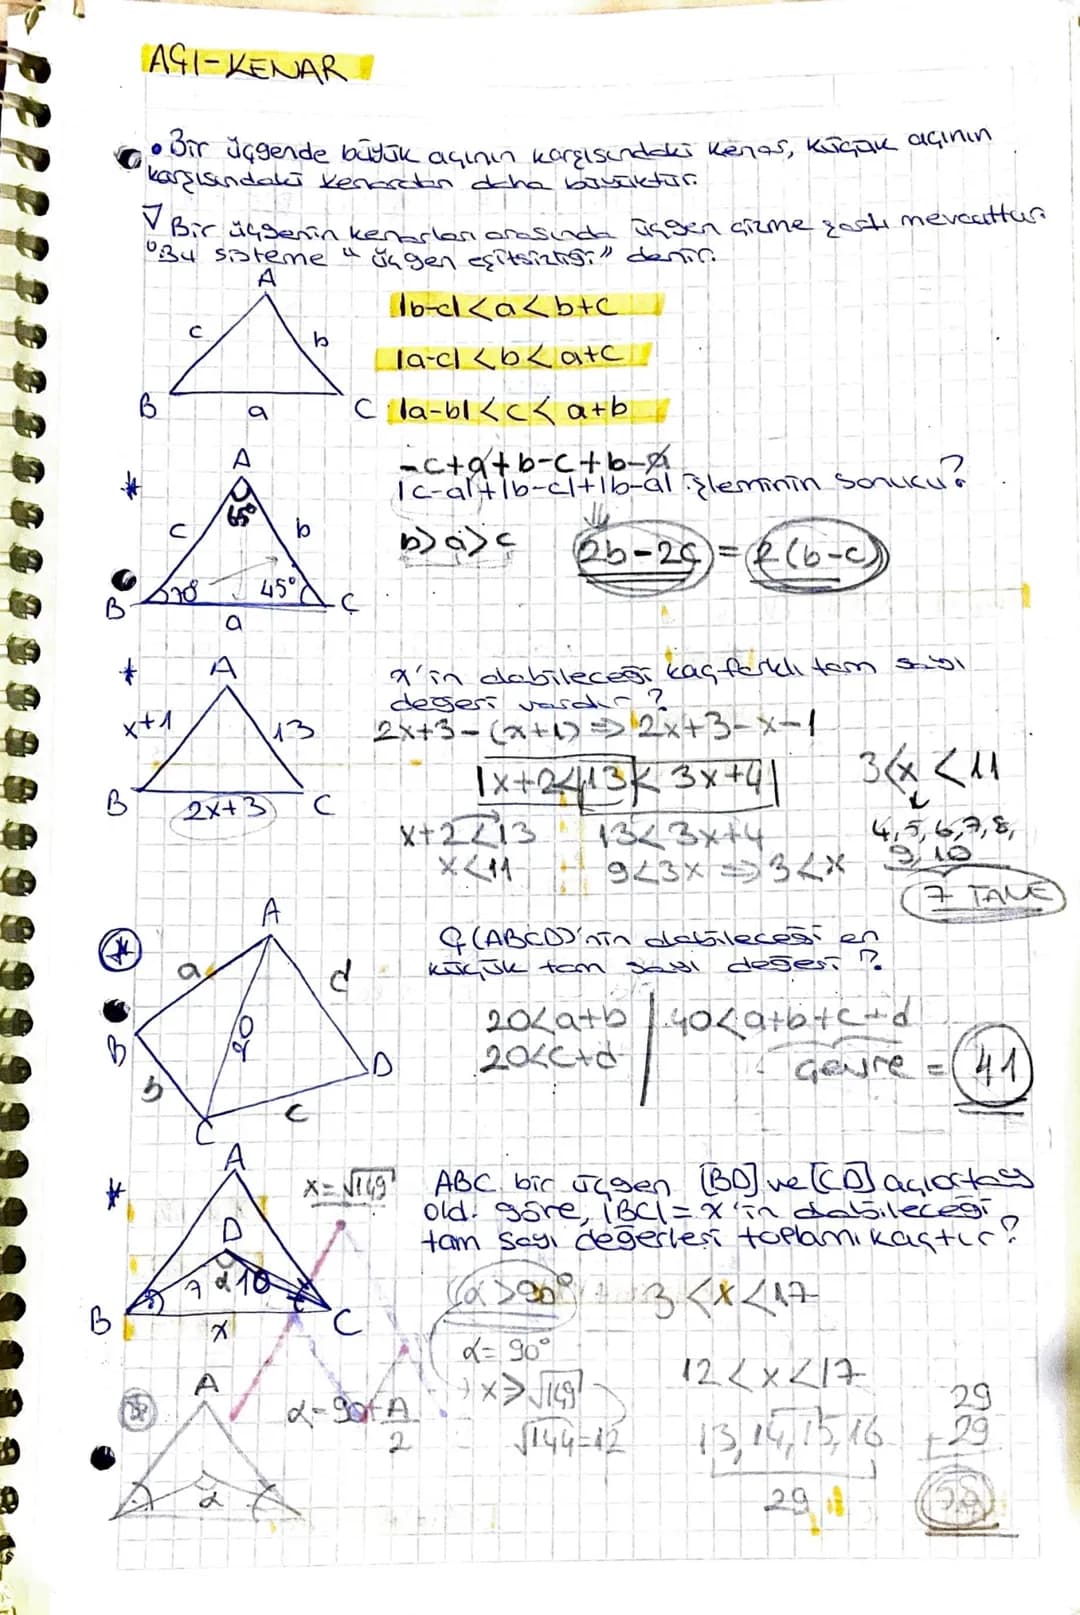 AÇI-KENAR
• Bir üçgende büyük açının karşısındaki kenar, küçük açının
karşısındaki kenardan daha büyüktür.
∇ Bir üçgenin kenarları arasında üçgen çizme şartı mevcuttur.
Bu sisteme "üçgen eşitsizliği" denir.
A
c
b
B
a
C
|b-c|<a<b+c
|a-c|<b<a+c
|a-b|<c<a+b
* A
-c+a+b-c+b-a
|c-a|+|b-c|+|b-a| işleminin sonucu?
65°
c
b
b>a>c
2b-2c = 2(b-c)
70°
45°
B
C
a
* A
x'in alabileceği kaç farklı tam sayı
değeri vardır?
x+1
13
2x+3-(x+1) ⇒ 2x+3-x-1
|x+2<13<3x+4|
3<x<11
B
2x+3
C
x+2<13
13<3x+4
4,5,6,7,8,
9,10
x<11
9<3x ⇒ 3<x
7 TANE
* A
Ç(ABCD)'nin alabileceği en
küçük tam sayı değeri?
a
d
20<a+b
40<a+b+c+d
20
B
D
20<c+d
Çevre = 41
b
c
C
* A
x=√149
ABC bir üçgen [BD] ve [CD] açıortay
old. göre, |BC|=x'in alabileceği
tam sayı değerleri toplamı kaçtır?
D
7 α 10
B
x
C
α>90°
3<x<17
α=90°
x>√149
12<x<17
√144=12
13,14,15,16
29
29
+29
58
A
α=90+A/2
α